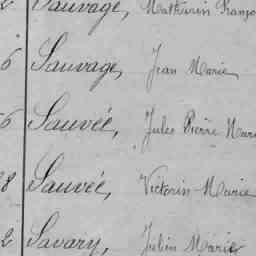 Sauvage, Mathurin Franço
6 Sauvage, Jean Marie
6 Sauvée, Jules Pierre Mari
8 Sauvée, Victorin Marie
2 Savary, Julien Marie